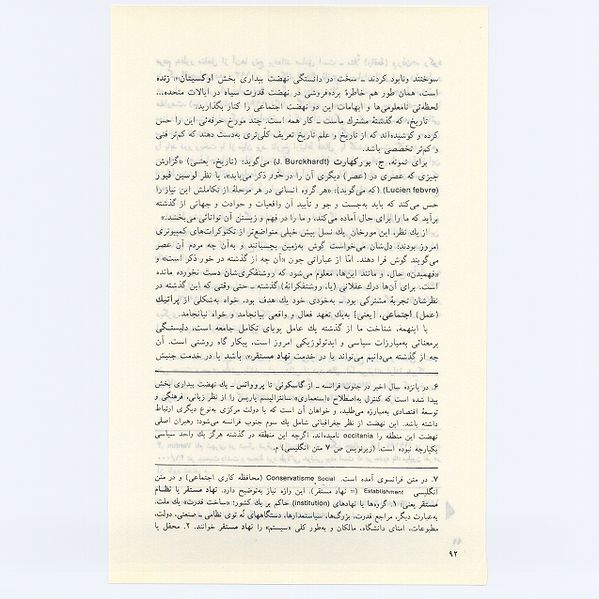 سوختند ونابود کردند ـ سخت در دانستگی نهضت بیداری بخش اوکسیتان۶، زنده
است، همان طور هم خاطرهٔ برده‌فروشی در نهضت قدرت سیاه در ایالات متحده...
لحظه‌ئی نامعلومی‌ها و ابهامات این دو نهضت اجتماعی را کنار بگذارید.
تاریخ، که گذشتهٔ مشترك ماست ـ کار همه است. چند مورخ حرفه‌ئی این را حس
کرده و کوشیده‌اند که از تاریخ و علم تاریخ تعریف کلّی‌تری به‌دست دهند که کم‌تر فنی
و کم‌تر تخصصی باشد.
برای نمونه، ج. بورکهارت (J. Burckhardt) می‌گوید: (تاریخ، یعنی) «گزارش
چیزی که عصری در (عصر) دیگری آن را درخور ذکر می‌یابد»، یا نظر لوسین فبور
(Lucien febvre) (که می‌گوید): «هر گروه انسانی در هر مرحلهٔ از تکاملش این نیاز را
حس می‌کند که باید به‌جست و جو و تأیید آن واقعیات و حوادث و جهاتی از گذشته
برآید که ما را برای حال آماده می‌کند، و ما را در فهم و زیستن آن توانائی می‌بخشد.»
از یك نظر، این مورخان یك نسل پیش خیلی متواضع‌تر از تکنوکرات‌های کمپیوتری
امروز بودند؛ دل‌شان می‌خواست گوش به‌زمین بچسبانند و به‌آن چه مردم آن عصر
می‌گویند گوش فرا دهند. امّا از عباراتی چون «آن چه از گذشته در خور ذکر است» و
«فهمیدن» حال، و مانند این‌ها، معلوم می‌شود که روشنفکری‌شان دست نخورده مانده
است. برای آن‌ها درك عقلانی (یا، روشنفکرانهٔ) گذشته ـ حتی وقتی که این گذشته در
نظرشان تجربهٔ مشترکی بود ـ به‌خودی خود یك هدف بود، خواه به‌شکلی از پراتیك
(عمل) اجتماعی، [یعنی] به‌یك تعهد فعال و واقعی بیانجامد و خواه نیانجامد.
با اینهمه، شناخت ما از گذشته یك عامل پویای تکامل جامعه است، دلبستگی
برمعنائی به‌مبارزات سیاسی و ایدئولوژیکی امروز است، پیکار گاه روشنی است. آن
چه از گذشته می‌دانیم می‌تواند یا در خدمت نهاد مستقر۷، باشد یا در خدمت جنبش
۶. در پانزده سال اخیر در جنوب فرانسه ـ از گاسکونی تا پرووانس ـ یك نهضت بیداری بخش
پیدا شده است که کنترل به‌اصطلاح «استعماری» سانترالیسم پاریس را از نظر زبانی، فرهنگی و
توسعهٔ اقتصادی به‌مبارزه می‌طلبد، و خواهان آن است که با دولت مرکزی به‌نوع دیگری ارتباط
داشته باشد. این نهضت از نظر جغرافیائی شامل یك سوم جنوب فرانسه می‌شود؛ رهبران اصلی
نهضت این منطقه را occitania نامیده‌اند، اگرچه این منطقه در گذشته هرگز یك واحد سیاسی
یکپارچه نبوده است. (زیرنویس ص ۷ متن انگلیسی) م.
۷. در متن فرانسوی آمده است. Conservatisme Social (محافظه کاری اجتماعی) و در متن
انگلیسی Establishment (= نهاد مستقر). این واژه نیاز به‌توضیح دارد. نهاد مستقر یا نظام
مستقر یعنی: ۱. گروه‌ها یا نهادهای (institution) حاکم بر یك کشور؛ «ساخت قدرت» یك ملت.
به‌عبارت دیگر، مراجع قدرت، بزرگ‌ها، سیاستمدارها، دستگاههای تُه توی نظامی ـ صنعتی، دولت،
مطبوعات، امنای دانشگاه، مالکان و به‌طور کلی «سیستم» را نهاد مستقر خوانند. ۲. محفل یا
۹۲